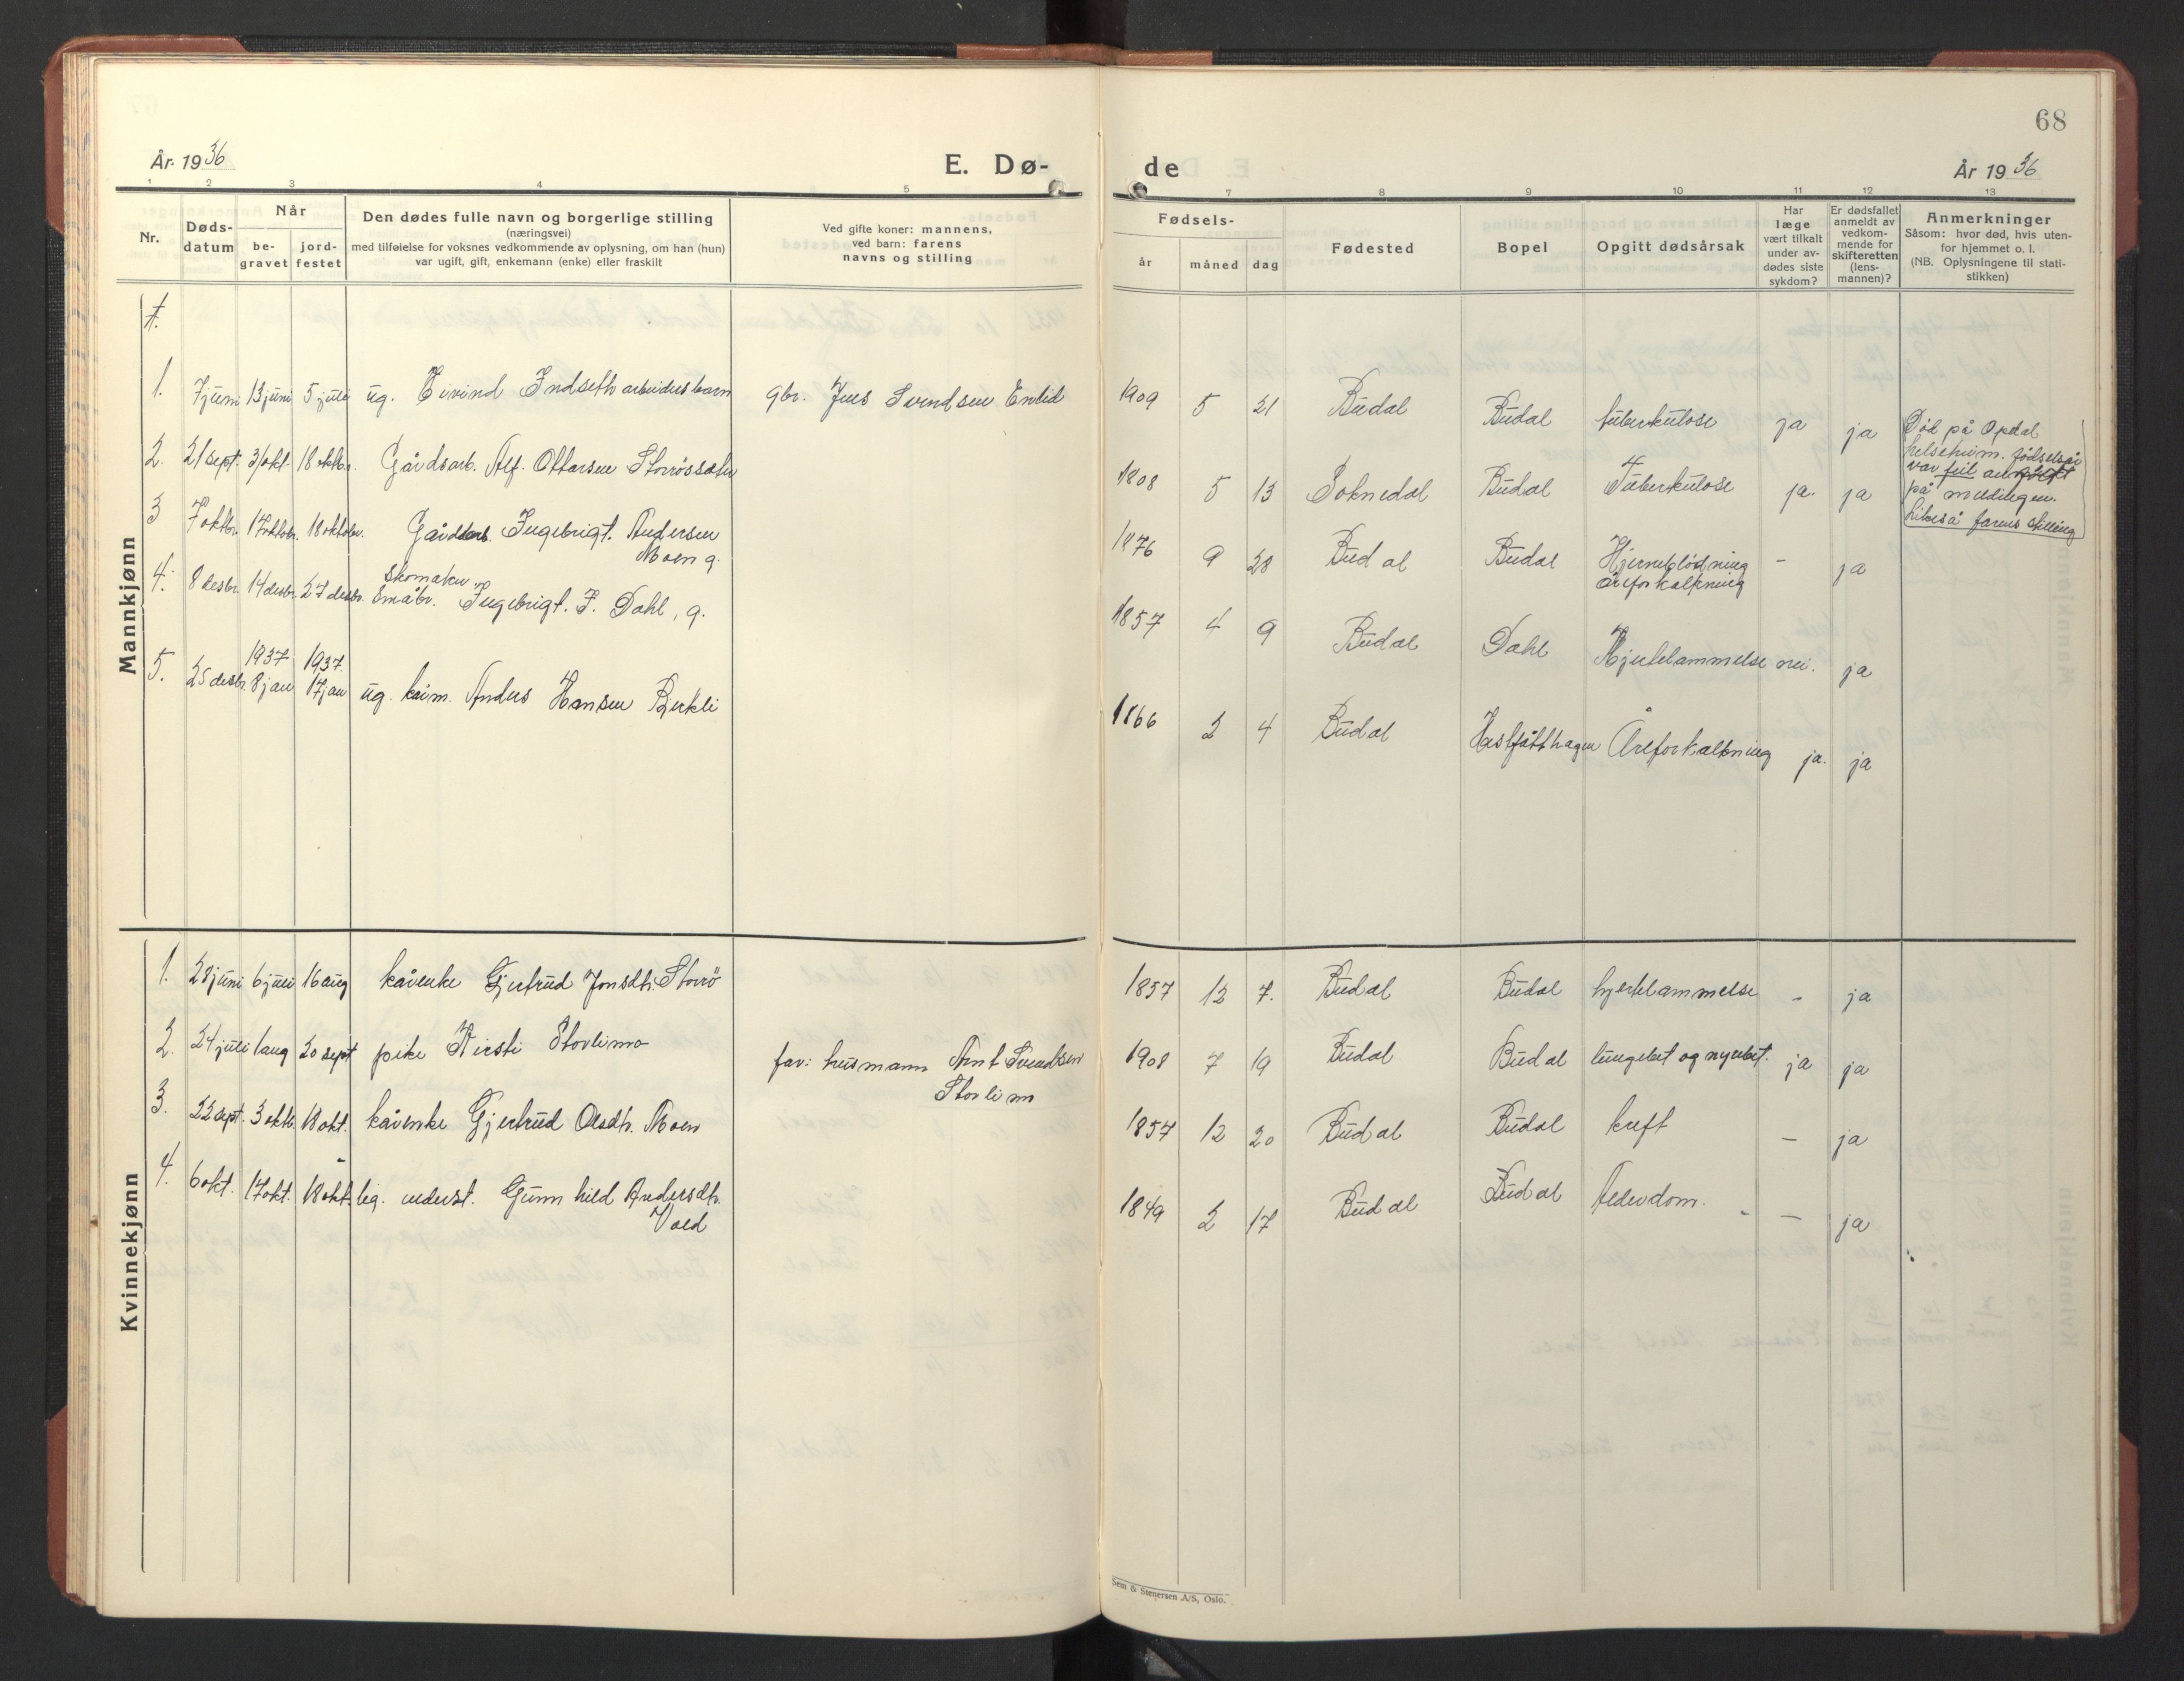 68
År 1936
E. Dø-
de
År 1936
1 2 3 4 5 7 8 9 10 11 12 13
Nr.
Døds-
datum
Når
be-
gravet
jord-
festet
Den dødes fulle navn og borgerlige stilling
(næringsvei)
med tilføielse for voksnes vedkommende av oplysning, om han (hun)
var ugift, gift, enkemann (enke) eller fraskilt
Ved gifte koner: mannens,
ved barn: farens
navns og stilling
Fødsels-
år måned dag
Fødested
Bopel
Opgitt dødsårsak
Har
læge
vært tilkalt
under av-
dødes siste
sykdom?
Er dødsfallet
anmeldt av
vedkom-
mende for
skifteretten
(lens-
mannen)?
Anmerkninger
Såsom: hvor død, hvis uten-
for hjemmet o. l.
(NB. Oplysningene til stati-
stikken)
Mannkjønn
1. 7 juni 13 juni 5 juli ug. Eivind Indseth arbeidersbarn gbr. Jens Svendsen Enlid 1909 5 21 Budal Budal tuberkulose ja ja
Død på Opdal
helseheim. fødselsår
var feil
på meldingen.
likeså farens stilling
2. 21 sept. 3/okt. 18 oktbr. Gårdsarb. Alf. Ottarsen Storrøssæter 1808 5 13 Soknedal Budal Tuberkulose ja. ja
3 7 oktbr. 17 oktobr. 18 oktobr. Ingebrigt. Andersen
Moen g. 1876 9 28 Budal Budal Hjerneblødning
åreforkalkning - ja
4. 8 desbr. 14 desbr. 27 desbr. skomaker
Småbr. Ingebrigt. J. Dahl, g. 1857 4 9 Budal Dahl Hjertelammelse nei. ja
5. 25 desbr. 1937 8 jan 1937. 17 jan ug. kårm. Anders Hansen Bjerkli 1866 2 4 Budal Hestfåtthagen Åreforkalkning ja. ja
Kvinnekjønn
1. 28 juni 6 juli 16 aug kårenke Gjertrud Jonsdtr. Storrø 1857 12 7. Budal Budal hjertelammelse - ja
2. 24 juli 1 aug 20 sept pike Kirsti Storlimo far: husmann Arnt Svendsen
Storlimo 1908 7 19 Budal Budal lungebet og nyrebet. ja ja
3. 22 sept. 3 oktb 18 okt. kårenke Gjertrud Olsdtr. Moen 1857 12 20 Budal Budal kreft - ja
4. 6 okt. 17 okt. 18 okt. leg. underst. Gunnhild Andersdtr.
Vold 1849 2 17 Budal Budal Alderdom. - ja
Sem & Stenersen A/S, Oslo.